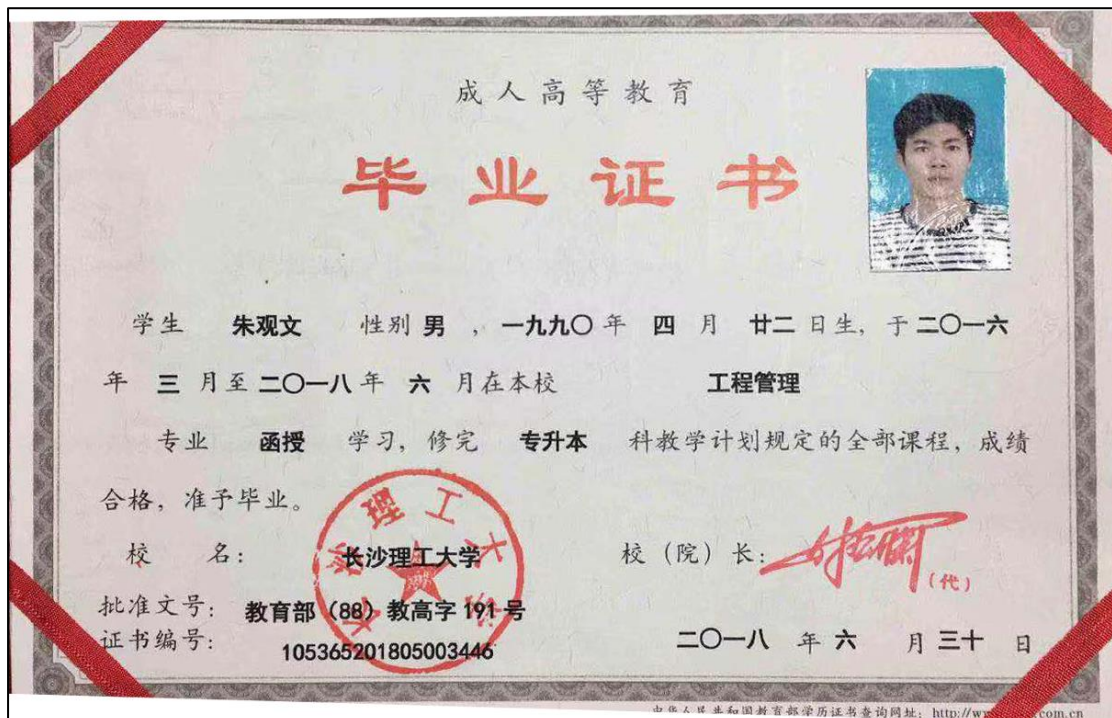 成人高等教育
毕业证书
学生 朱观文 性别 男 ，一九九〇年 四 月 廿二 日生，于二〇一六
年 三 月至二〇一八年 六 月在本校 工程管理
专业 函授 学习，修完 专升本 科教学计划规定的全部课程，成绩
合格，准予毕业。
校 名： 长沙理工大学 校（院）长：
（代）
批准文号： 教育部（88）教高字 191 号
证书编号： 105365201805003446 二〇一八 年 六 月 三十 日
长沙理工大学
中华人民共和国教育部学历证书查询网址：http://w com.cn